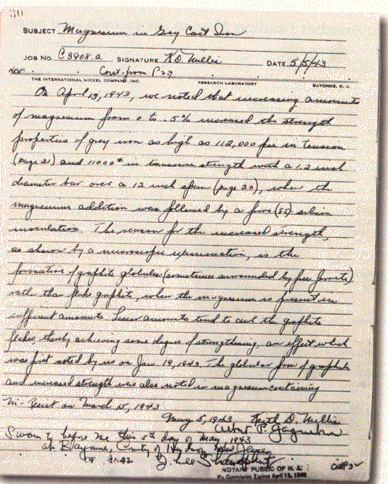 30
SUBJECT Magnesium in Gray Cast Iron
JOB NO. C3908.2 SIGNATURE K.D. Millis DATE 5/5/43
Cont. from P 29
THE INTERNATIONAL NICKEL COMPANY, INC. RESEARCH LABORATORY BAYONNE, N. J.
On April 13, 1943, we noted that increasing amounts
of magnesium from 0 to .5% increased the strength
properties of gray iron as high as 112,000 psi in tension
(page 21) and 11000# in transverse strength with a 1.2 inch
diameter bar over a 12 inch span (page 20), when the
magnesium addition was followed by a ferro (85) silicon
inoculation. The reason for the increased strength,
as shown by a microscopic examination, is the
formation of graphite globules (sometimes surrounded by free ferrite)
rather than flake graphite, when the magnesium is present in
sufficient amounts. Lesser amounts tend to curl the graphite
flakes, thereby achieving some degree of strengthening, an effect which
was first noted by us on Jan. 19, 1943. The globular form of graphite
and increased strength was also noted in magnesium containing
Ni-Resist on March 15, 1943
May 5, 1943 Keith D. Millis
Sworn to before me this 5th day of May 1943
at Bayonne, County of Hudson, New Jersey
NOTARY PUBLIC OF N. J.
My Commission Expires April 15, 1946